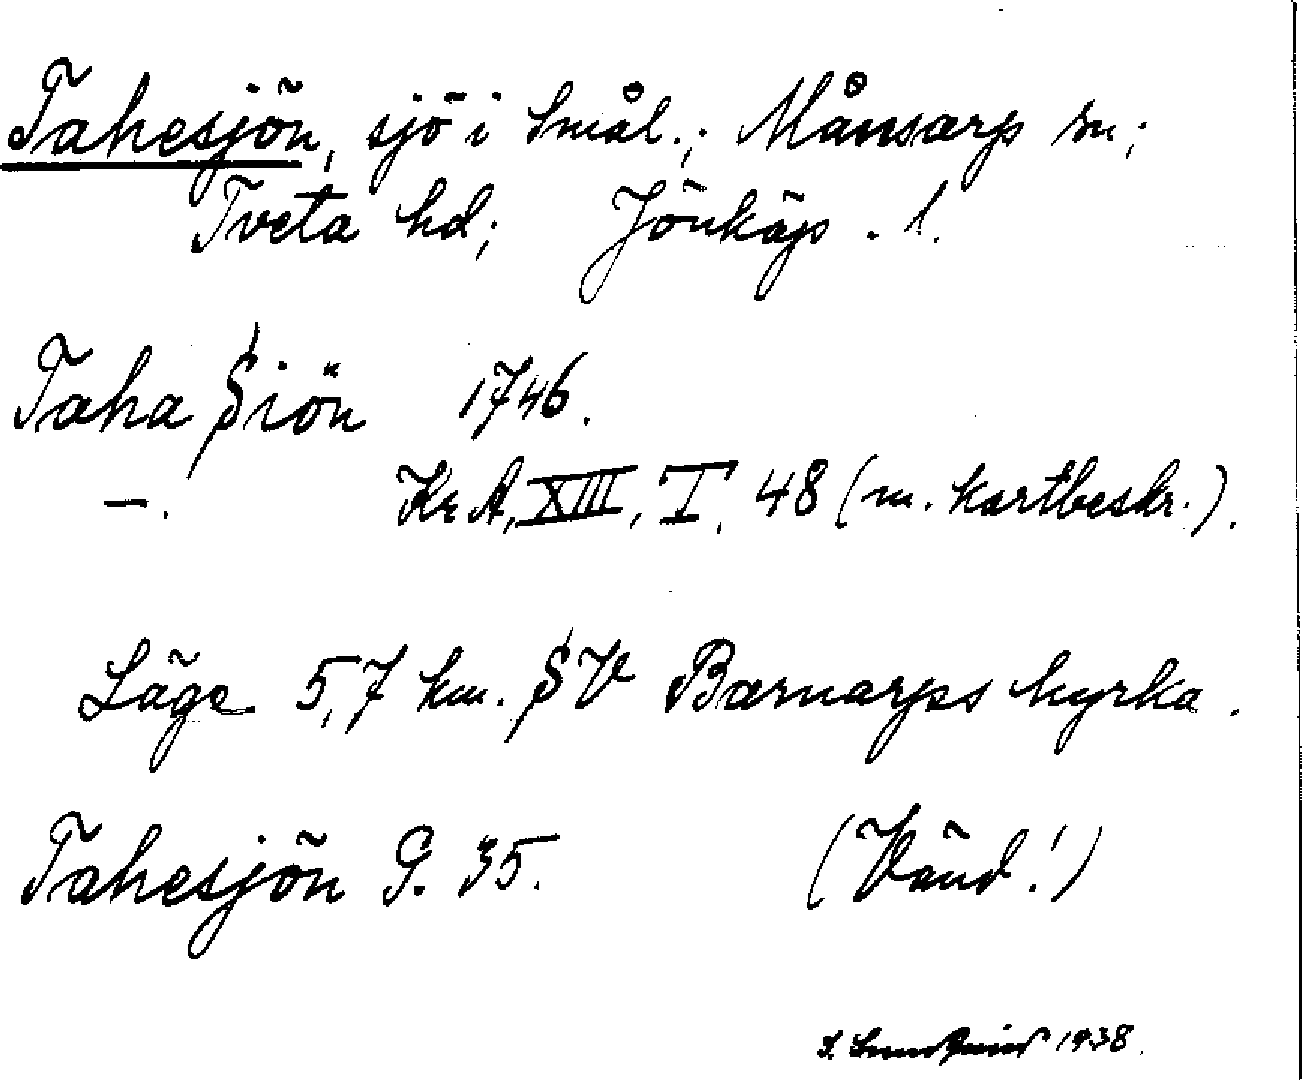 Tahesjön, sjö i Smål.; Månsarp sn;
Tveta hd; Jönköp. l.
Taha Siön 1746.
—. Kr A, XIII, I, 48 (m. kartbeskr.).
Läge 5,7 km. SV Barnarps kyrka.
Tahesjön G. 35. (Vänd!)
1938.